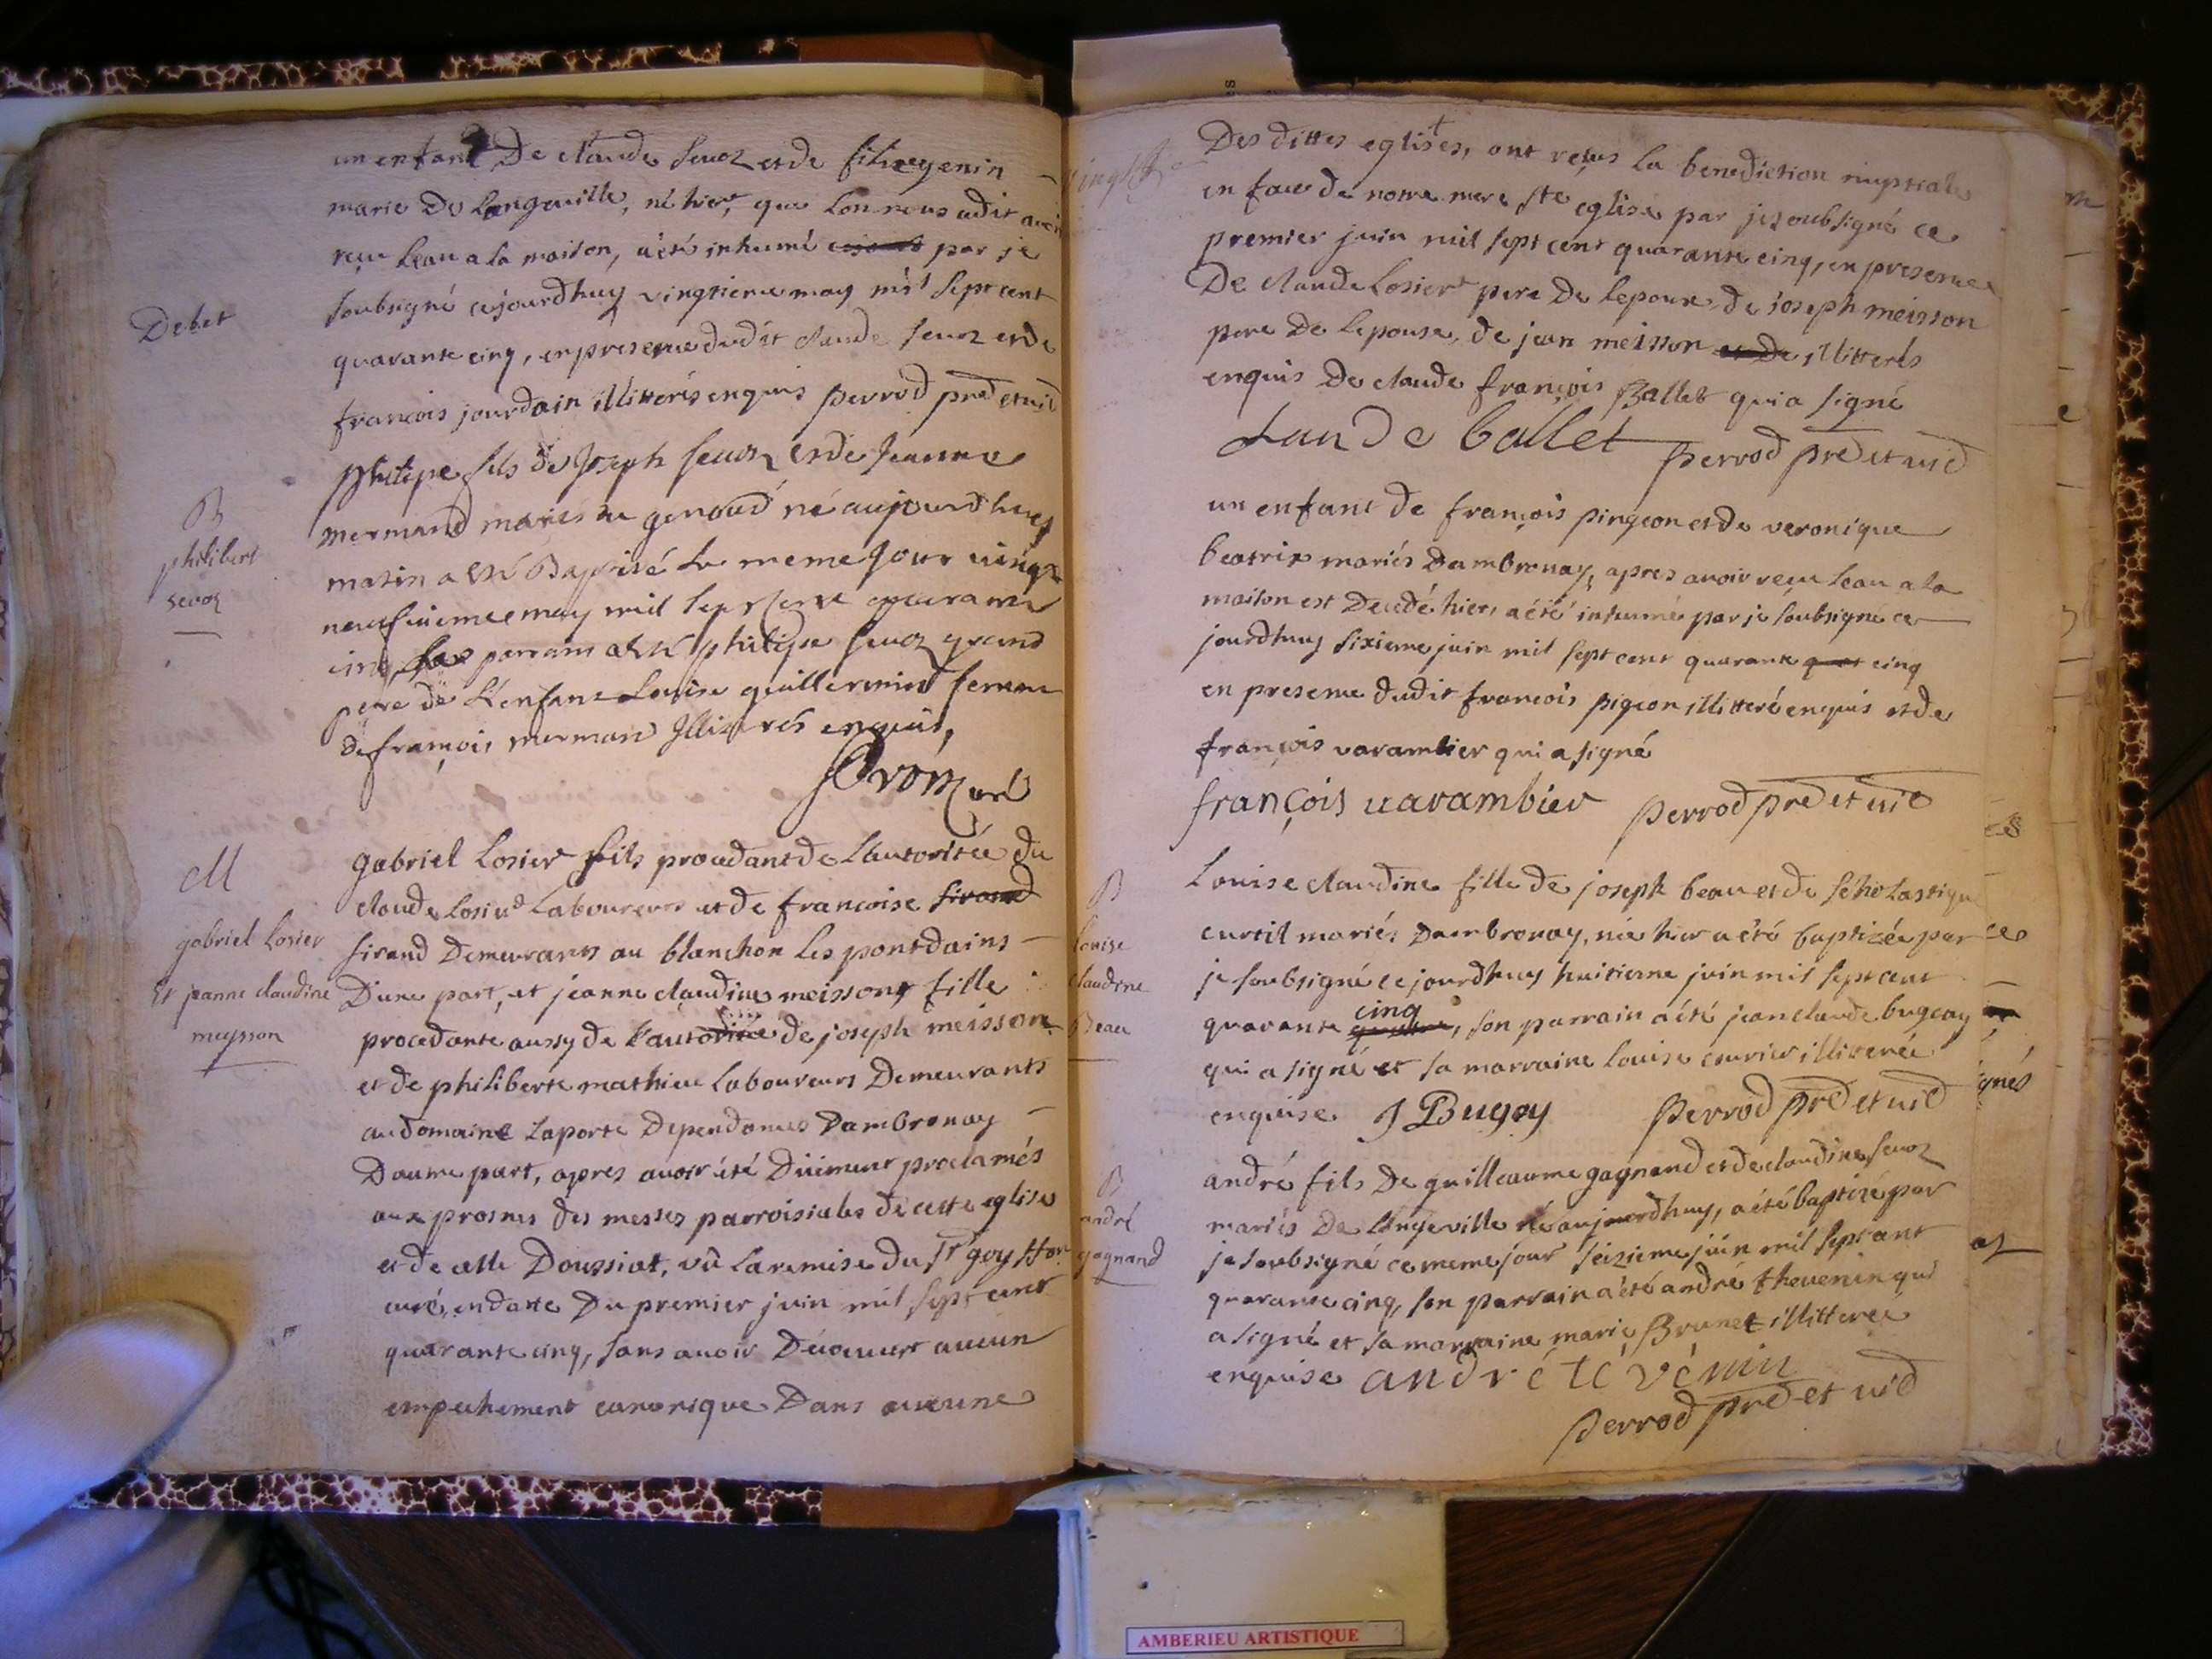 un enfant De claude Seuoz et de
marie De Longeuille, né hier, que Lon nous a dit auoir
reçu Leau a la maison, a été inhumé par je
soubsigné cejourdhuy vingtieme may mil Sept cent
quarante cinq, en presence dudit claude Seuoz et de
francois jourdain illitterés enquis perrod pred et uic
Debet
philipe fils de Joseph Seuoz et de Jeanne
mermand mariés au genoud né aujourdhuy
matin a été Baptisé Le meme Jour uingt
neufuieme may mil Sept cent quarante
cinq, son parrain a été philipe Seuoz grand
pere de L'enfant Louise guillermind femme
de françois merman Illiterés enquis,
curé
B
philibert
sevoz
gabriel Losier fils procedant de L'autoritée du
claude Losier Laboureurs et de francoise sirand
sirand Demeurants au blanchon Les pontdains
D'une part, et jeanne claudine meisson, fille
procedante aussy de L'autoritée de joseph meisson
et de philiberte mathieu Laboureurs Demeurants
au domaine Laporte Dependances Dambronay
Dautre part, apres auoir été Düement proclamés
aux prosnes des messes parroisiales de cette eglise
et de celle Doussiat, vû La remise du Sr goy
curé, en datte Du premier juin mil sept cent
quarante cinq, sans auoir Découuert aucun
empechement canonique Dans aucune
M
gabriel Losier
Et jeanne claudine
meysson
Des dittes eglises, ont reçus La benediction nuptiale
en face de notre mere Ste eglise par je soubsigné ce
premier juin mil sept cent quarante cinq, en presence
De claude Losier pere De lepoux, de joseph meisson
pere De Lepouse, de jean meisson et De illitterés
enquis De claude françois Ballet qui a signé
ballet perrod pred et uic
un enfant de françois pingeon et de veronique
beatrix mariés Dambronay, apres auoir reçu Leau a la
maison est Decedé hier, a été inhumé par je soubsigné ce
jourdhuy sixieme juin mil sept cent quarante cinq
en presence dudit francois pigeon illitteré enquis et de
françois varambier qui a signé
françois uarambier perrod pred et uic
Louise claudine fille de joseph beau et de scholastique
curtil mariés Dambronay, née hier a été baptizée par
je soubsigné cejourdhuy huitieme juin mil sept cent
quarante cinq, son parrain a été jean claude bugey
qui a signé et sa marraine louise courier illiterée
enquise J Bugey perrod pred et uic
B
Louise
claudine
Beau
andré fils De guilleaume gagnand et de claudine Seuoz
mariés De Longeville né aujourdhuy, a été baptizé par
je soubsigné ce meme jour seizieme juin mil sept cent
quarante cinq, son parrain a été andré thevenin qui
a signé et sa marraine marie Brunet illitterée
enquise andré té vénin
perrod pred et uic
B
andré
gagnand
AMBERIEU ARTISTIQUE